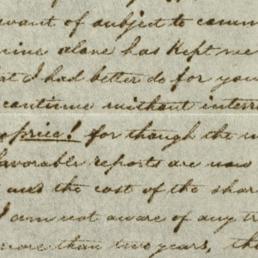 want of subject to comm
mine alone has kept me
at I had better do for you
continue without interr
price! for though the u
favorable reports are now
and the cost of the shar
I am not aware of any tr
more than two years, tha